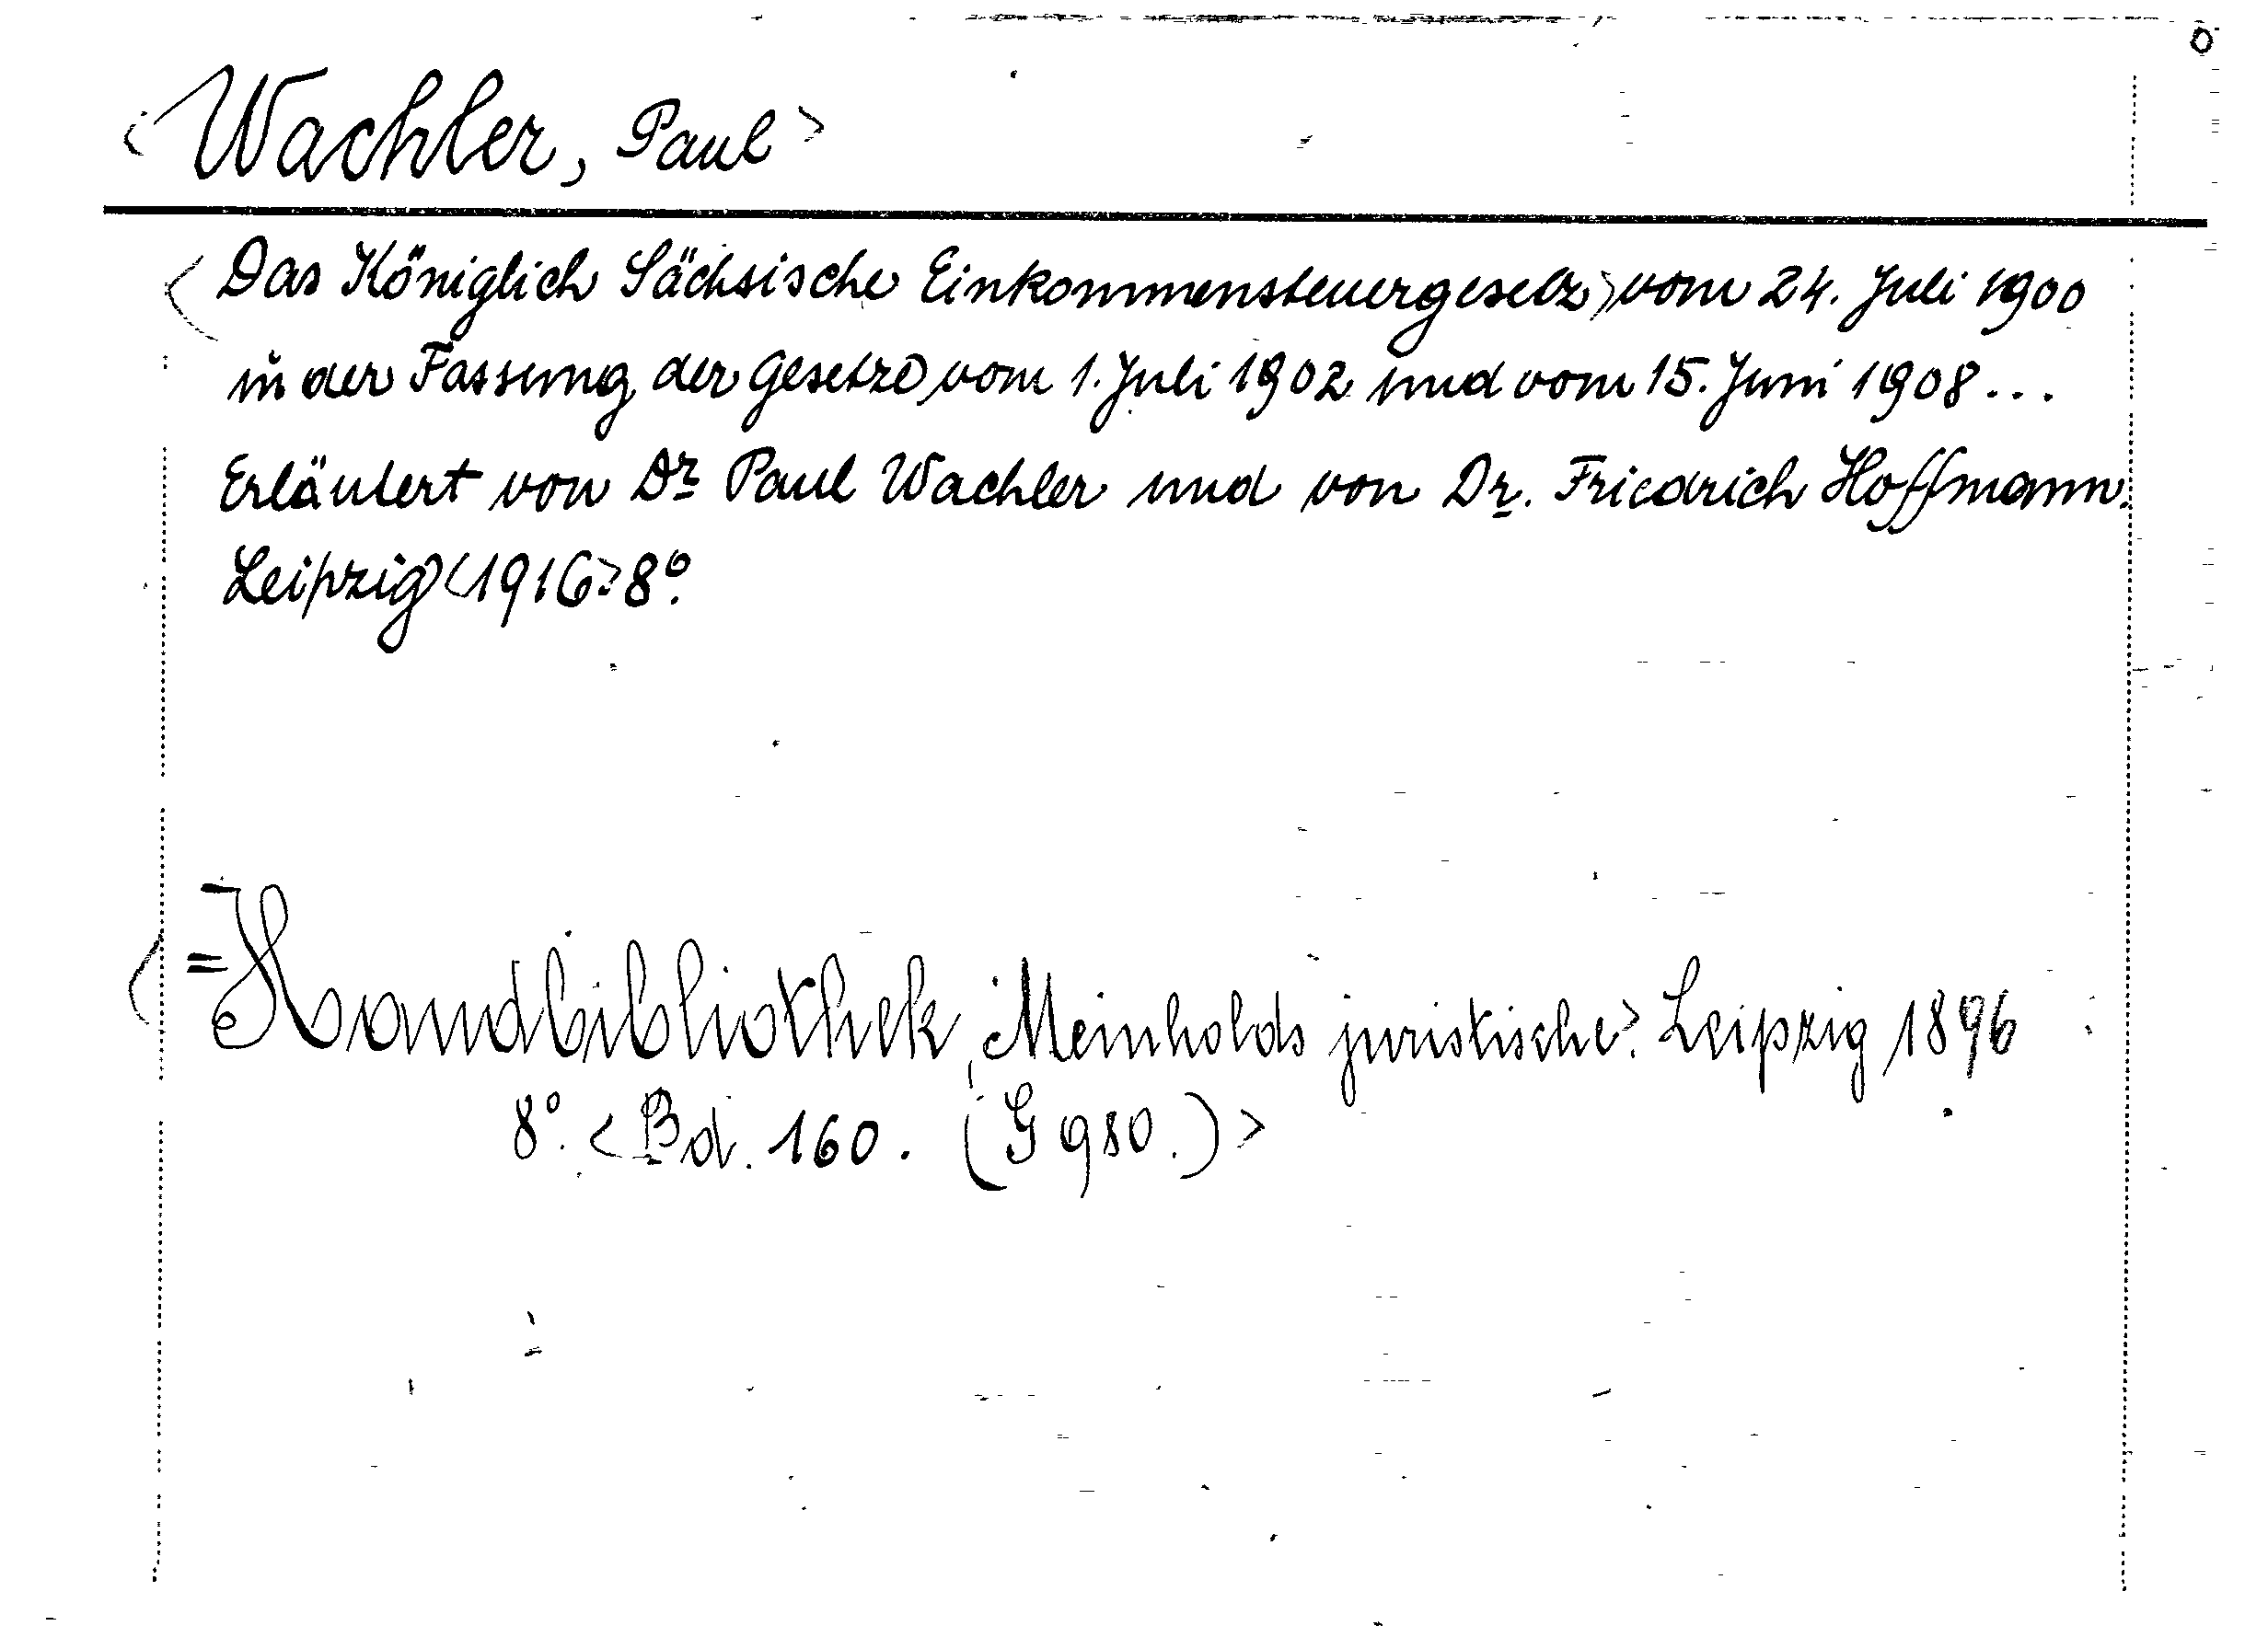 <Wachler, Paul>
<Das Königlich Sächsische Einkommensteuergesetz> vom 24. Juli 1900
in der Fassung der Gesetze vom 1. Juli 1902 und vom 15. Juni 1908...
Erläutert von Dr Paul Wachler und von Dr. Friedrich Hoffmann.
Leipzig <1916> 8°.
<=Handbibliothek, Meinholds juristische>. Leipzig 1896
8°. <Bd. 160. (G 980.)>